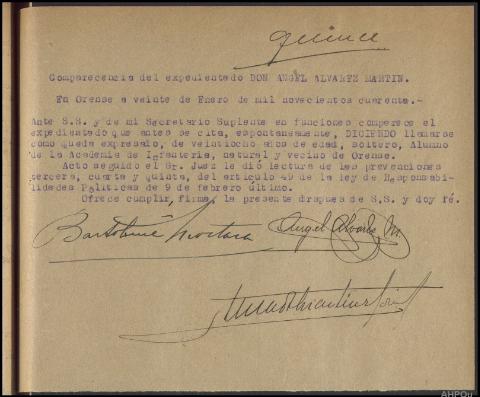 quince
Comparecencia del expedientado DON ANGEL ALVAREZ MARTIN.
En Orense a veinte de Enero de mil novecientos cuarenta.-
Ante S.S. y de mi Secretario Suplente en funciones comparece el
expedientado que antes se cita, espontaneamente, DICIENDO llamarse
como queda expresado, de veintiocho años de edad, soltero, Alumno
de la Academia de Infanteria, natural y vecino de Orense.
Acto seguido el Sr. Juez le dió lectura de las prevenciones
tercera, cuarta y quinta, del articulo 49 de la ley de Responsabi-
lidades Politicas de 9 de febrero último.
Ofrece cumplir, firma, la presente drspues de S.S. y doy fé.
Bartolomé
Angel Alvarez M.
AHPOu